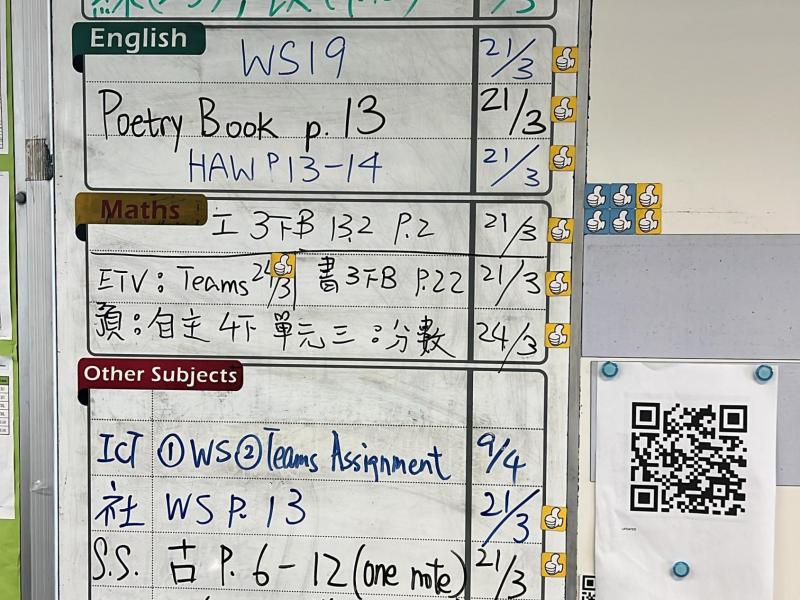 English
WS19 21/3
Poetry Book p. 13 21/3
HAW P13-14 21/3
Maths
工 3下B 13.2 P.2 21/3
ETV: Teams 24/3 書3下B P.22 21/3
預:自主 4下 單元三:分數 24/3
Other Subjects
ICT ①WS②Teams Assignment 9/4
社 WS P. 13 21/3
S.S. 古 P. 6-12 (one note) 21/3